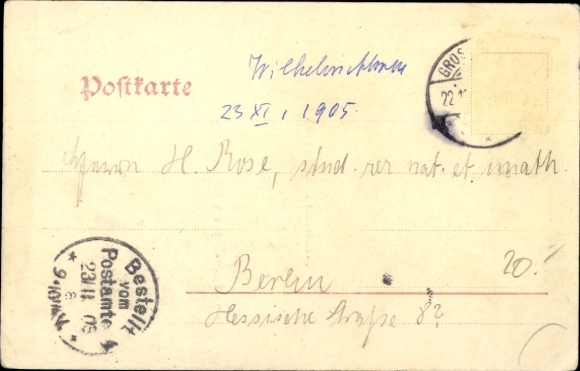 Postkarte
23 XI, 1905.
GROS
22.
Herrn H. Rose, stud. rer nat. et math.
Berlin
20.
Hessische Straße 8?
Bestellt
vom
Postamte 4
23/11 05